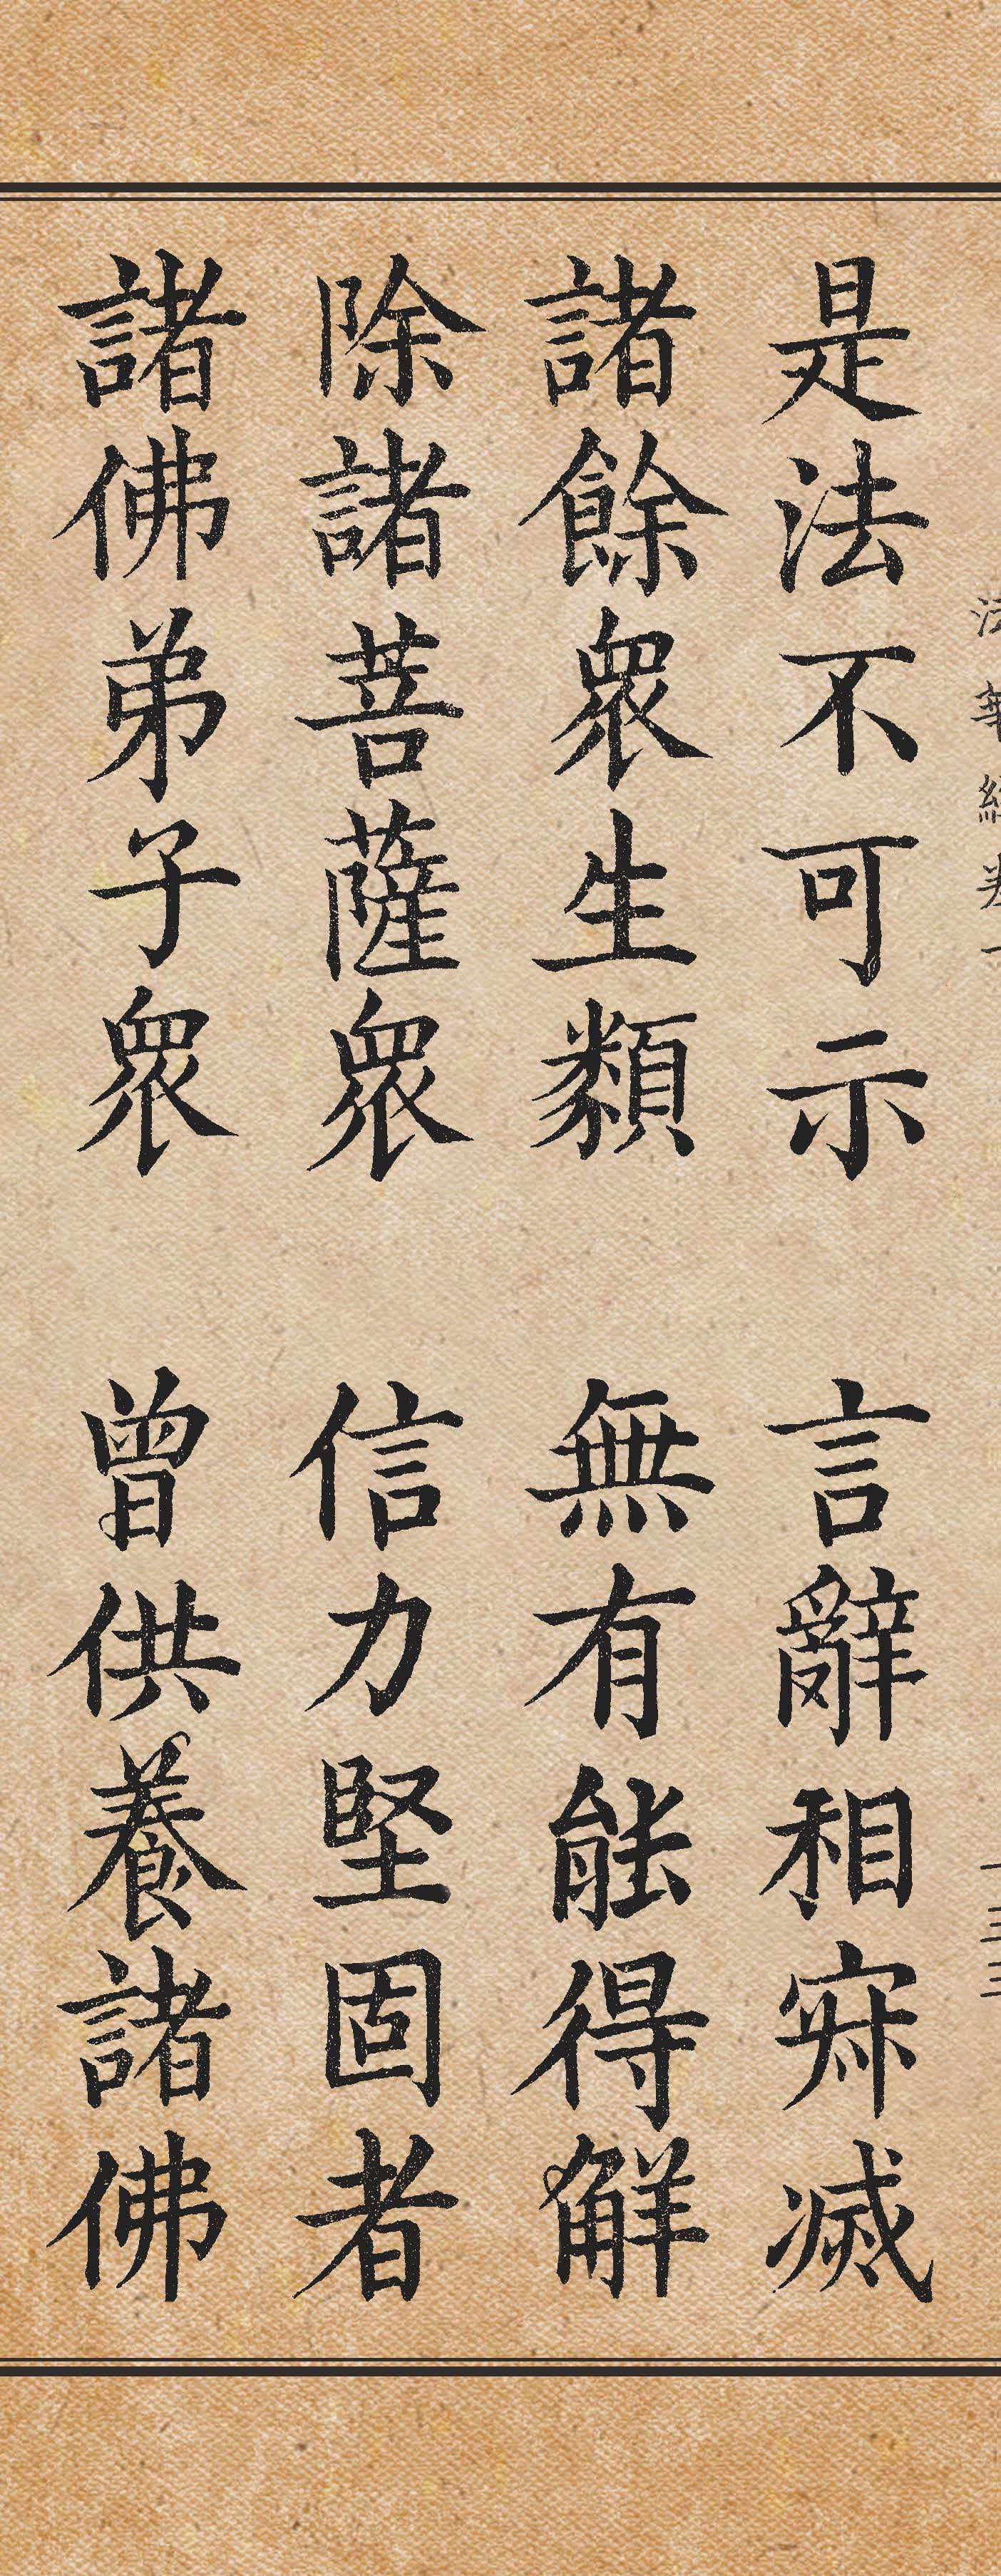 是法不可示 言辭相寂滅
諸餘眾生類 無有能得解
除諸菩薩眾 信力堅固者
諸佛弟子眾 曾供養諸佛